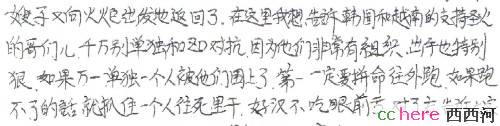 妹子又向火炬出发地返回了.在这里我想告诉韩国和越南的支持圣火
的哥们儿,千万别单独和ZD对抗.因为他们非常有组织.出手也特别
狠.如果万一单独一个人被他们围上了.第一一定要拼命往外跑.如果跑
不了的话就抓住一个人往死里干.好汉不吃眼前
cchere 西西河